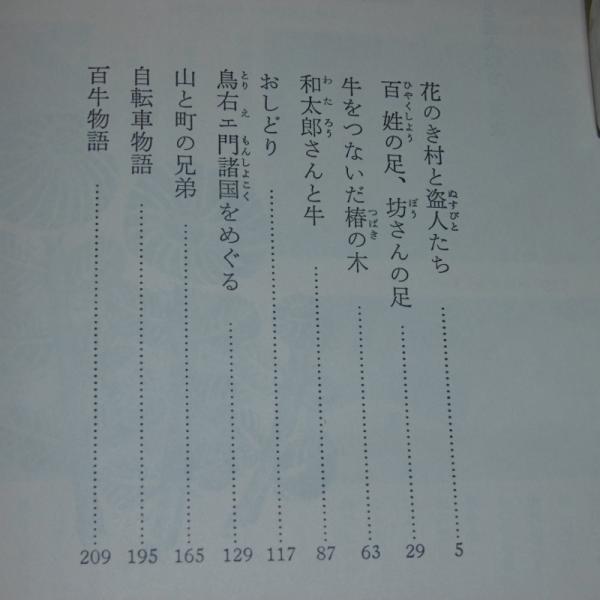 花のき村と盗人たち 5
百姓の足、坊さんの足 29
牛をつないだ椿の木 63
和太郎さんと牛 87
おしどり 117
鳥右ェ門諸国をめぐる 129
山と町の兄弟 165
自転車物語 195
百牛物語 209